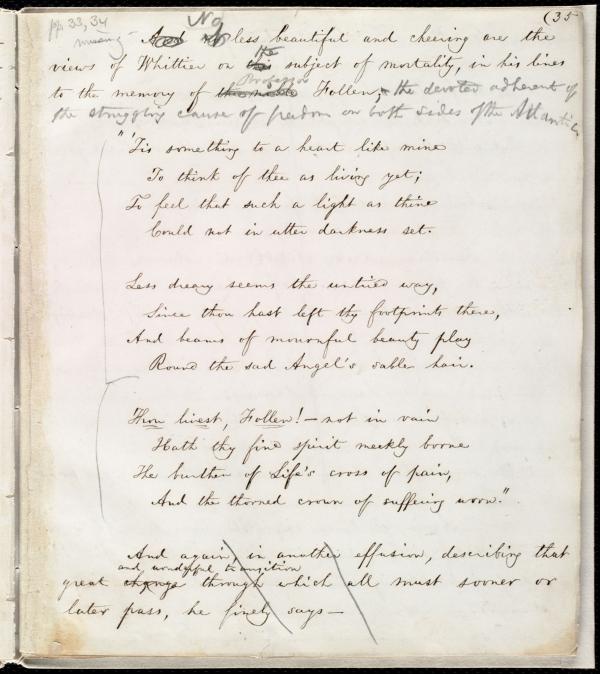 pp 33, 34
missing -
(35
No
And no less beautiful and cheering are the
the
views of Whittier on this subject of mortality, in his lines
Professor
to the memory of the noble Follen, the devoted adherent of
the struggling cause of freedom on both sides of the Atlantic
"'Tis something to a heart like mine
To think of thee as living yet;
To feel that such a light as thine
Could not in utter darkness set.
Less dreary seems the untried way,
Since thou hast left thy footprints there,
And beams of mournful beauty play
Round the sad Angel's sable hair.
Thou livest, Follen! - not in vain
Hath thy fine spirit meekly borne
The burthen of Life's cross of pain,
And the thorned crown of suffering worn."
And again, in another effusion, describing that
and wonderful transition
great change through which all must sooner or
later pass, he finely says -